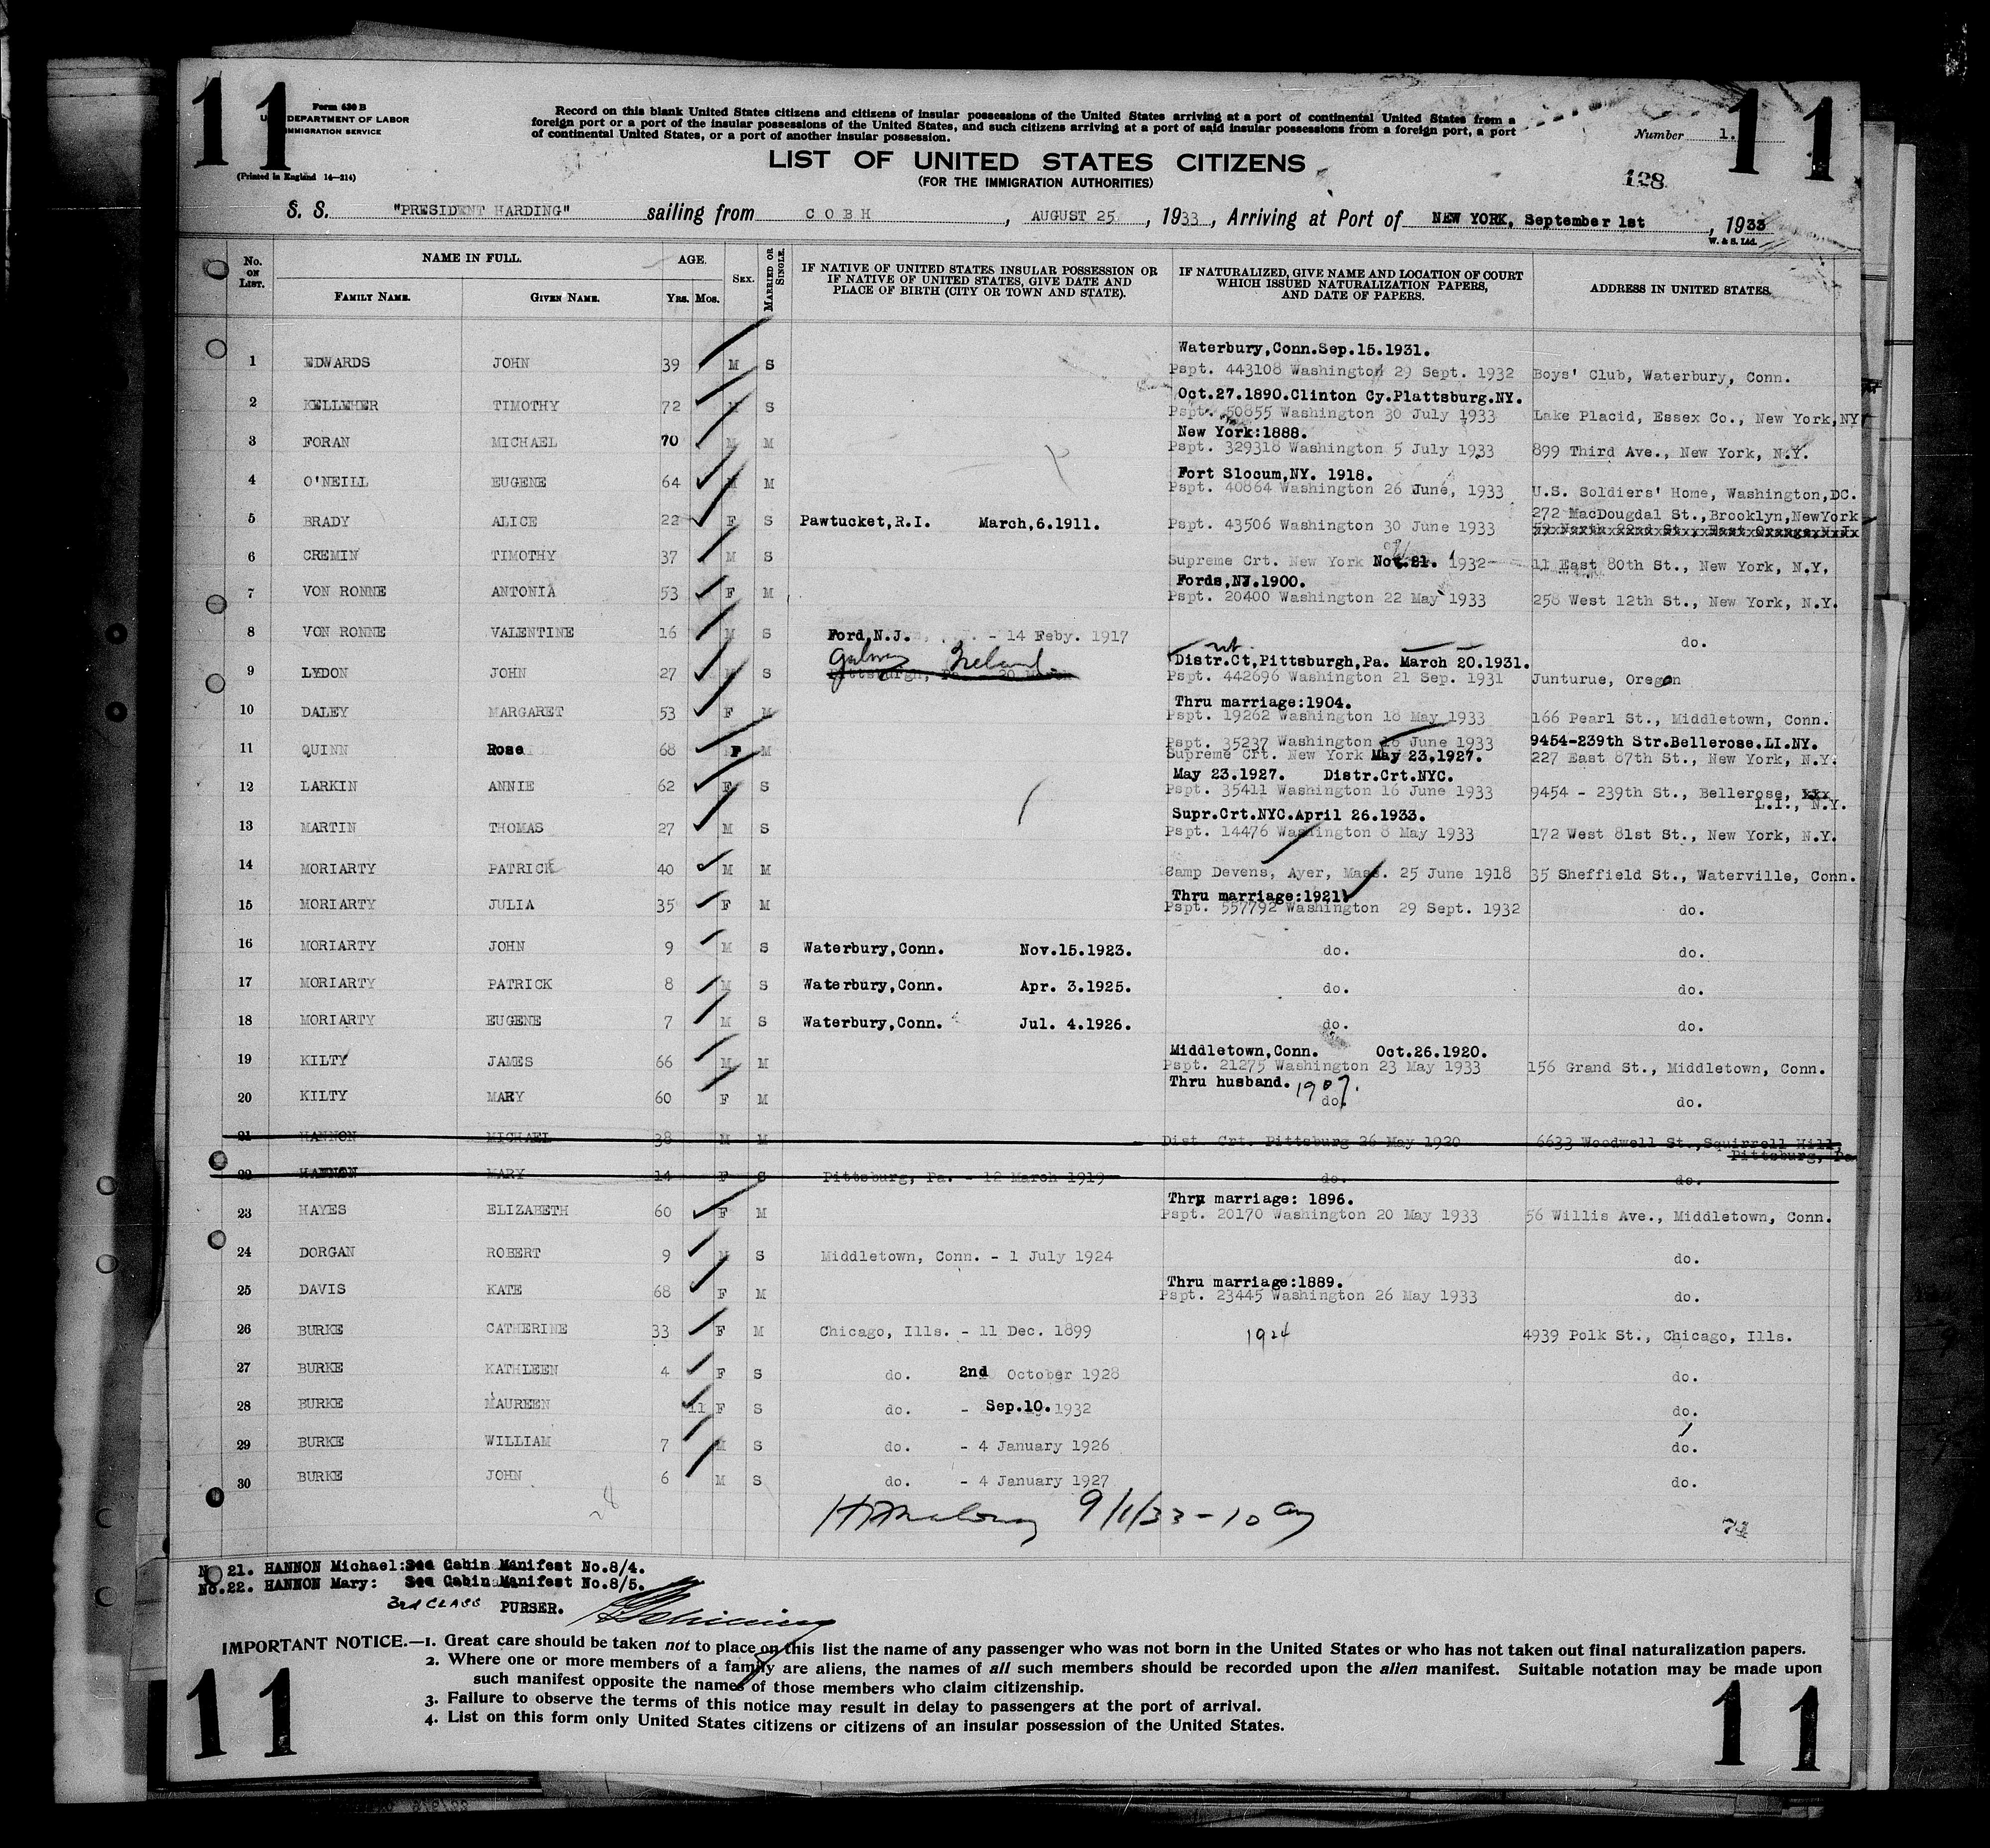 11 11
Form 630 B
DEPARTMENT OF LABOR
IMMIGRATION SERVICE
(Printed in England 14—214)
Record on this blank United States citizens and citizens of insular possessions of the United States arriving at a port of continental United States from a
foreign port or a port of the insular possessions of the United States, and such citizens arriving at a port of said insular possessions from a foreign port, a port
of continental United States, or a port of another insular possession.
Number 1.
LIST OF UNITED STATES CITIZENS
(FOR THE IMMIGRATION AUTHORITIES)
128
S. S. "PRESIDENT HARDING" sailing from COBH, AUGUST 25, 1933, Arriving at Port of NEW YORK, September 1st, 1933
W. & S. Ltd.
No. ON LIST. NAME IN FULL. AGE. SEX. MARRIED OR SINGLE. IF NATIVE OF UNITED STATES INSULAR POSSESSION OR IF NATIVE OF UNITED STATES, GIVE DATE AND PLACE OF BIRTH (CITY OR TOWN AND STATE). IF NATURALIZED, GIVE NAME AND LOCATION OF COURT WHICH ISSUED NATURALIZATION PAPERS, AND DATE OF PAPERS. ADDRESS IN UNITED STATES.
FAMILY NAME. GIVEN NAME. Yrs. Mos.
Waterbury,Conn.Sep.15.1931.
1 EDWARDS JOHN 39 M S Pspt. 443108 Washington 29 Sept. 1932 Boys' Club, Waterbury, Conn.
Oct.27.1890.Clinton Cy.Plattsburg.NY.
2 KELLEHER TIMOTHY 72 M S Pspt. 50855 Washington 30 July 1933 Lake Placid, Essex Co., New York,NY
New York:1888.
3 FORAN MICHAEL 70 M M Pspt. 329318 Washington 5 July 1933 899 Third Ave., New York, N.Y.
Fort Slocum,NY. 1918.
4 O'NEILL EUGENE 64 M M Pspt. 40864 Washington 26 June, 1933 U.S. Soldiers' Home, Washington,DC.
272 MacDougdal St.,Brooklyn,NewYork
5 BRADY ALICE 22 F S Pawtucket,R.I. March,6.1911. Pspt. 43506 Washington 30 June 1933 59 North 22nd St., East Orange N.J.
6 CREMIN TIMOTHY 37 M S Supreme Crt. New York Nov.21. 1932 11 East 80th St., New York, N.Y.
Fords,NJ.1900.
7 VON RONNE ANTONIA 53 F M Pspt. 20400 Washington 22 May 1933 258 West 12th St., New York, N.Y.
8 VON RONNE VALENTINE 16 M S Ford,N.J. - 14 Feby. 1917 do.
Galway Ireland. Distr.Ct,Pittsburgh,Pa. March 20.1931.
9 LYDON JOHN 27 M S Pittsburgh, Pa. Pspt. 442696 Washington 21 Sep. 1931 Junturue, Oregon
Thru marriage:1904.
10 DALEY MARGARET 53 F M Pspt. 19262 Washington 18 May 1933 166 Pearl St., Middletown, Conn.
Pspt. 35237 Washington 16 June 1933 9454-239th Str.Bellerose.LI.NY.
11 QUINN Rose 68 F M Supreme Crt. New York May 23.1927. 227 East 87th St., New York, N.Y.
May 23.1927. Distr.Crt.NYC.
12 LARKIN ANNIE 62 F S Pspt. 35411 Washington 16 June 1933 9454 - 239th St., Bellerose, xxx
L.I., N.Y.
Supr.Crt.NYC.April 26.1933.
13 MARTIN THOMAS 27 M S Pspt. 14476 Washington 8 May 1933 172 West 81st St., New York, N.Y.
14 MORIARTY PATRICK 40 M M Camp Devens, Ayer, Mass. 25 June 1918 35 Sheffield St., Waterville, Conn.
Thru marriage:1921
15 MORIARTY JULIA 35 F M Pspt. 557792 Washington 29 Sept. 1932 do.
16 MORIARTY JOHN 9 M S Waterbury,Conn. Nov.15.1923. do. do.
17 MORIARTY PATRICK 8 M S Waterbury,Conn. Apr. 3.1925. do. do.
18 MORIARTY EUGENE 7 M S Waterbury,Conn. Jul. 4.1926. do. do.
Middletown,Conn. Oct.26.1920.
19 KILTY JAMES 66 M M Pspt. 21275 Washington 23 May 1933 156 Grand St., Middletown, Conn.
Thru husband. 1907.
20 KILTY MARY 60 F M do. do.
21 HANNON MICHAEL 38 M M Dist. Crt. Pittsburg 26 May 1920 6633 Woodwell St.,Squirrell Hill,
Pittsburg, Pa
22 HANNON MARY 14 F S Pittsburg, Pa. - 12 March 1919 do. do.
Thru marriage: 1896.
23 HAYES ELIZABETH 60 F M Pspt. 20170 Washington 20 May 1933 56 Willis Ave., Middletown, Conn.
24 DORGAN ROBERT 9 M S Middletown, Conn. - 1 July 1924 do.
Thru marriage:1889.
25 DAVIS KATE 68 F M Pspt. 23445 Washington 26 May 1933 do.
26 BURKE CATHERINE 33 F M Chicago, Ills. - 11 Dec. 1899 1924 4939 Polk St., Chicago, Ills.
27 BURKE KATHLEEN 4 F S do. 2nd October 1928 do.
28 BURKE MAUREEN 11 F S do. - Sep.10.1932 do.
29 BURKE WILLIAM 7 M S do. - 4 January 1926 do.
30 BURKE JOHN 6 M S do. - 4 January 1927 do.
28 9/1/33 - 10 74
No 21. HANNON Michael:See Cabin Manifest No.8/4.
No.22. HANNON Mary: See Cabin Manifest No.8/5.
3rd CLASS PURSER.
IMPORTANT NOTICE.—1. Great care should be taken not to place on this list the name of any passenger who was not born in the United States or who has not taken out final naturalization papers.
2. Where one or more members of a family are aliens, the names of all such members should be recorded upon the alien manifest. Suitable notation may be made upon
such manifest opposite the names of those members who claim citizenship.
3. Failure to observe the terms of this notice may result in delay to passengers at the port of arrival.
4. List on this form only United States citizens or citizens of an insular possession of the United States.
11 11